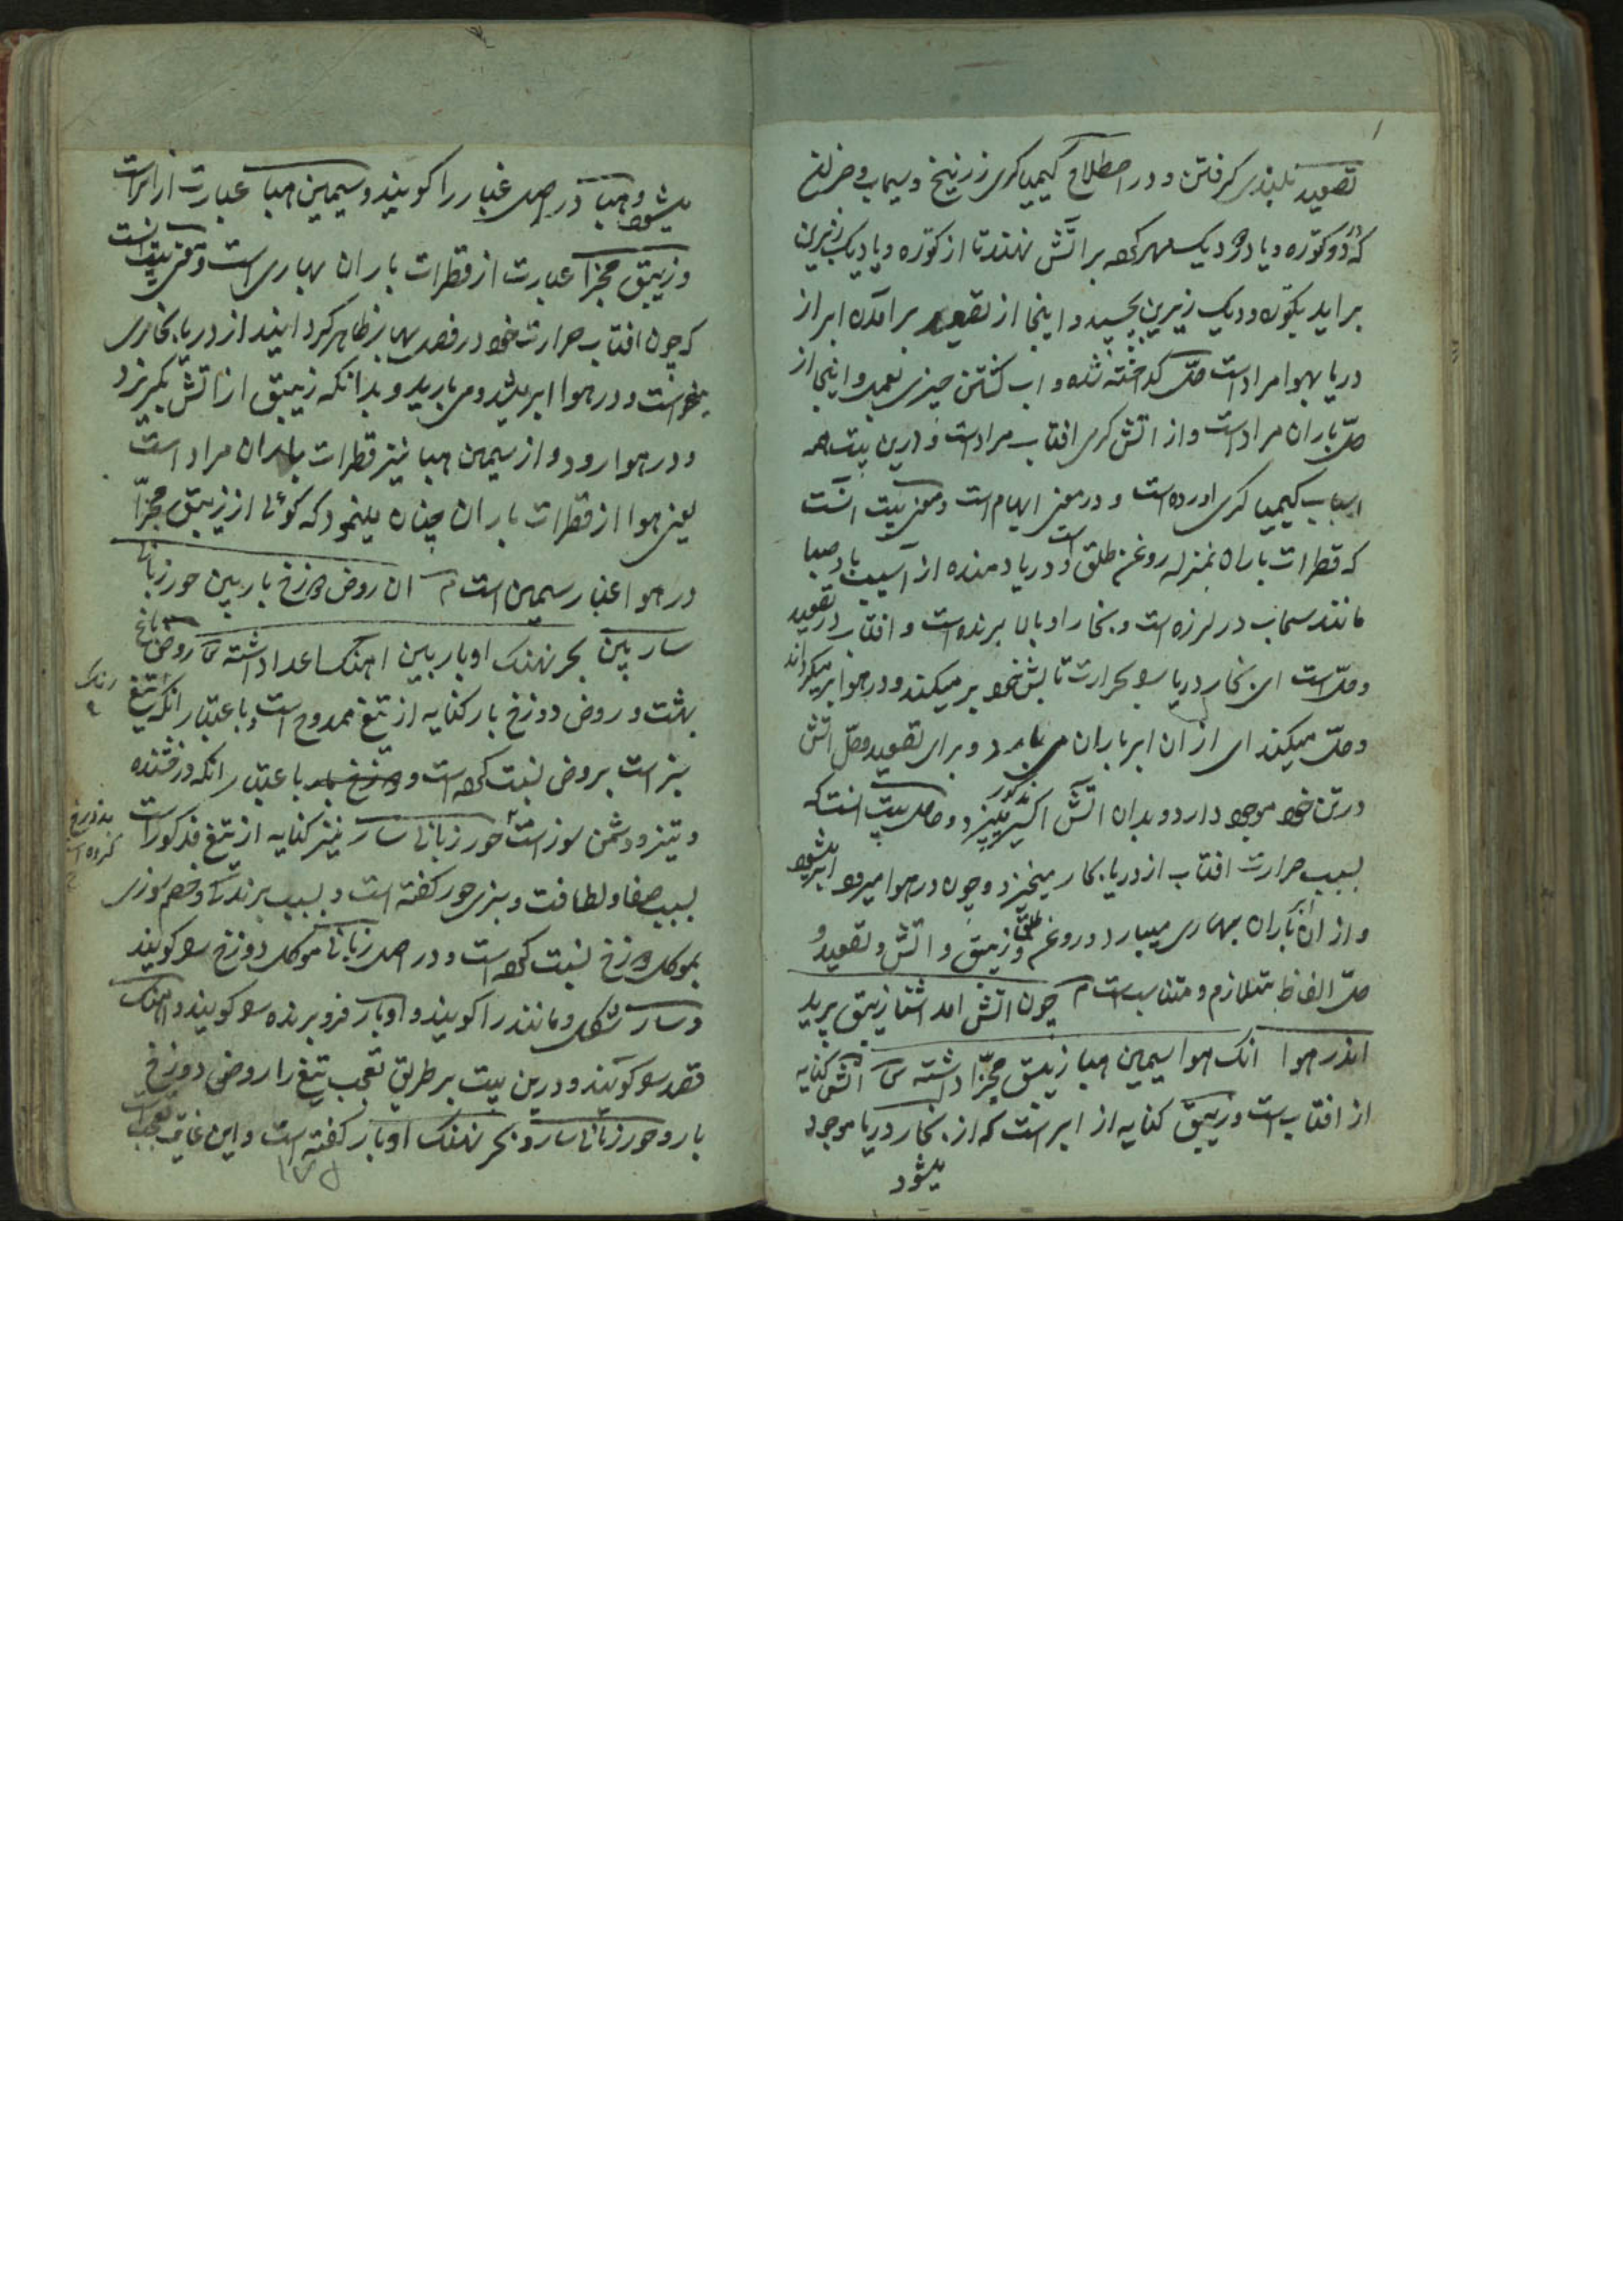 تصعید بلندی گرفتن و در اصطلاح کیمیاگری زرنیخ و سیماب و جز ان
که دو کوزه و یا دو دیک مهر کرده بر اتش نهند تا از کوزه و یا دیک زیرین
بر اید بکوزه و دیک زبرین بچسپد و اینجا از تصعید بر آمدن ابر از
دریا بهوا مراد است حل گداخته شده و اب گشتن چیزی نعمد و اینجا از
حل باران مراد است و از اتش گرمی افتاب مراد است و درین بیت همه
اسباب کیمیا گری اورده است و در معنی ایهام است و معنی بیت انست
که قطرات باران بمنزله روغن طلق است و دریا دمنده از آسیب باد صبا
مانند سیماب در لرزه است و بخار او بالا برنده است و افتاب در تصعید
و حل است این بخار دریا را بحرارت تابش خود بر میکند و در هوا بر میگرداند
و حل میکند ای از ان ابر باران می بارد و برای تصعید و حل اتش
در تن خود موجود دارد و بدان اتش اکسیر مذکور میپزد و حاصل بیت انست که
بسبب حرارت افتاب از دریا بخار میخیزد و چون در هوا میرود ابر میشود
و از ان باران بهاری میبارد و روغن طلق و زیبق و اتش و تصعید و
حل الفاظ متلازم و متناسب است م چون اتش امد اشنا زیبق پرید
اندر هوا انک هوا سیمین هبا زیبق مجزا داشته ش اتش کنایه
از افتاب است و زیبق کنایه از ابر است که از بخار دریا موجود
میشود
میشود و هبا در اصل غبار را گویند و سیمین هبا عبارت از ابر است
و زیبق مجزا عبارت از قطرات باران بهاری است و معنی بیت انست
که چون افتاب حرارت خود در فصل بهار ظاهر گردانید از دریا بخاری
بر خواست و در هوا ابر شد و می بارید و بدانکه زیبق از اتش بگریزد
و در هوا رود و از سیمین هبا نیز قطرات باران مراد است
یعنی هوا از قطرات باران چنان مینمود که گوئی از زیبق مجزا
در هوا غبار سیمین است م ان روض دوزخ بار بین حور زبانی
سار بین بحر نهنگ اوبار بین اهنگ اعدا داشته ش روض باغ
بهشت و روض دوزخ بار کنایه از تیغ ممدوح است و باعتبار انکه تیغ
رنگ
سبز است بروض نسبت کرده است و باعتبار انکه درفشنده
و تیز و دشمن سوز است حور زبانی سار نیز کنایه از تیغ مذکور است
بدوزخ
کرده است
بسبب صفا و لطافت و سبزی حور گفته است و بسبب برندگی و خصم سوزی
بموکل دوزخ نسبت کرده است و در اصل زبانی موکل دوزخ را گویند
و سار شکل و مانند را گویند و اوبار فرو برنده را گویند و اهنگ
قصد را گویند و درین بیت بر طریق تعجب تیغ را روض دوزخ
بار و حور زبانی سار و بحر نهنگ اوبار گفته است و این غایت تعجب است
۱۷۵